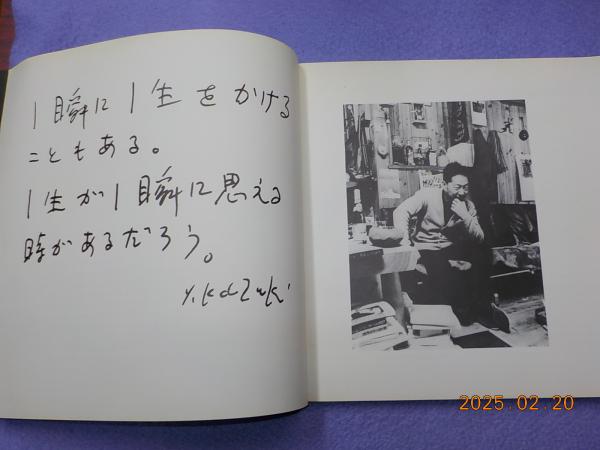 1瞬に1生をかける
こともある。
1生が1瞬に思える
時があるだろう。
Y.Kazuki
2025.02.20